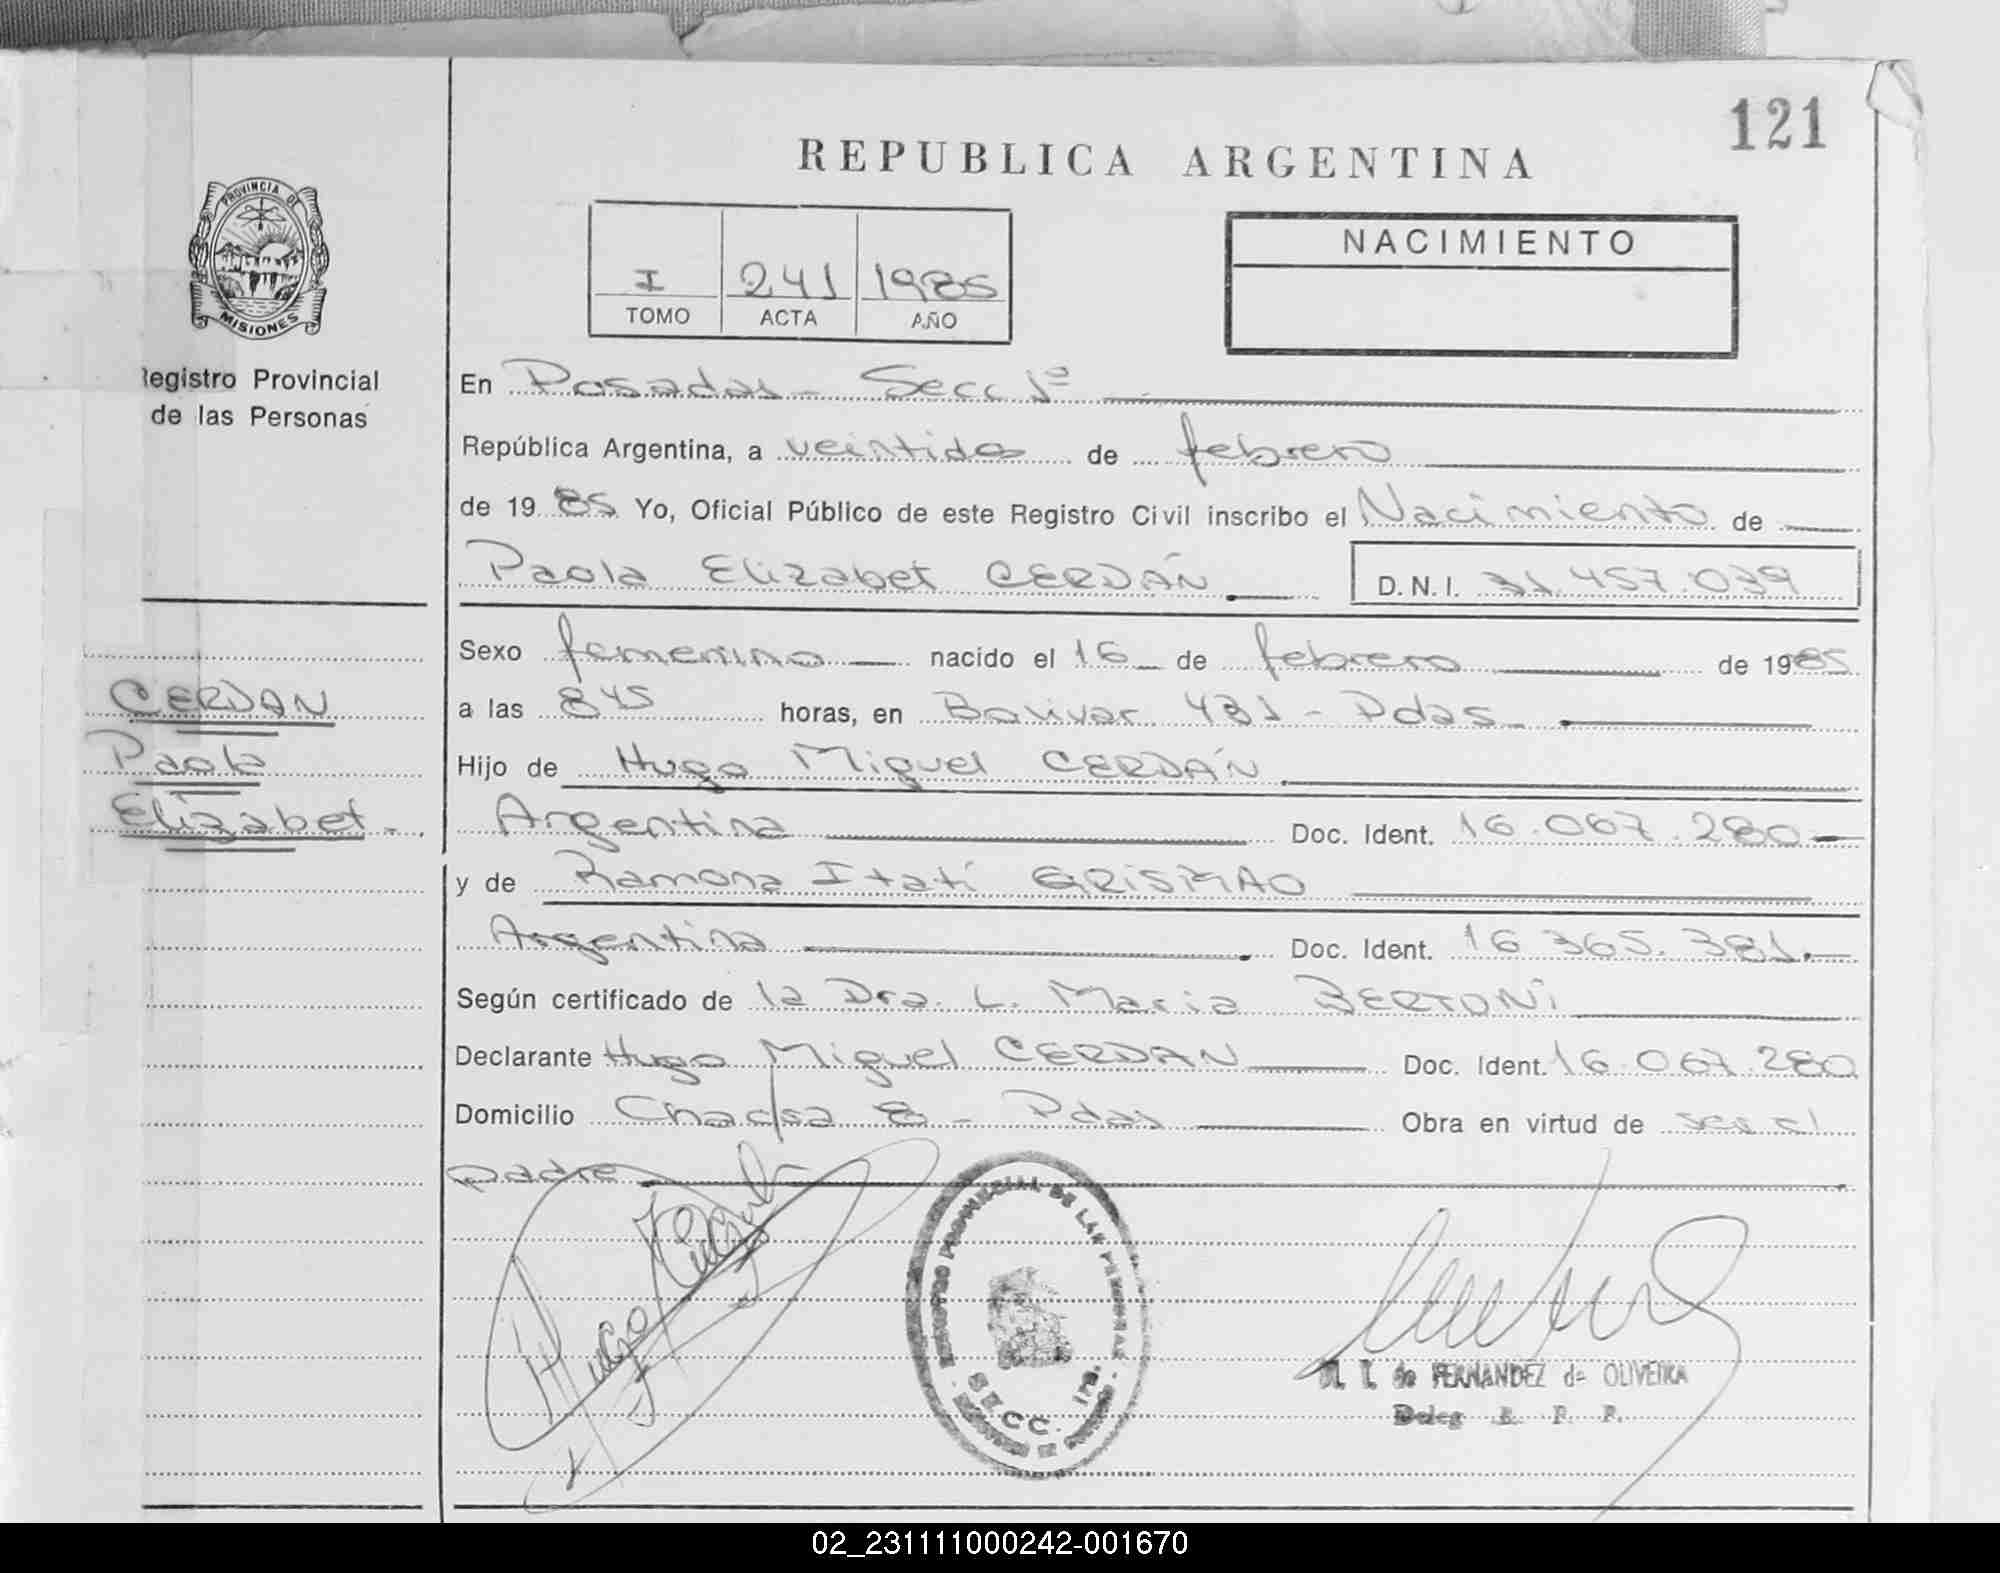 121
REPUBLICA ARGENTINA
PROVINCIA DE
MISIONES
Registro Provincial
de las Personas
I 241 1985
TOMO ACTA AÑO
NACIMIENTO
En Posadas - Secc 1ª
República Argentina, a veintidos de febrero
de 1985 Yo, Oficial Público de este Registro Civil inscribo el Nacimiento de
Paola Elizabet CERDÁN D.N.I. 31.457.039
Sexo femenino nacido el 16 de febrero de 1985
CERDAN
a las 8 45 horas, en Bolivar 431 - Pdas
Paola
Hijo de Hugo Miguel CERDÁN
Elizabet.
Argentina Doc. Ident. 16.067.280
y de Ramona Itatí GRISMAO
Argentina Doc. Ident. 16 365.381.
Según certificado de la Dra. L. Maria BERTONI
Declarante Hugo Miguel CERDAN Doc. Ident. 16.067.280
Domicilio Chacra 8 - Pdas Obra en virtud de ser el
padre
REGISTRO PROVINCIAL DE LAS PERSONAS
SECC. 1ra.
de FERNANDEZ de OLIVEIRA
Deleg R. P. P.
02_231111000242-001670